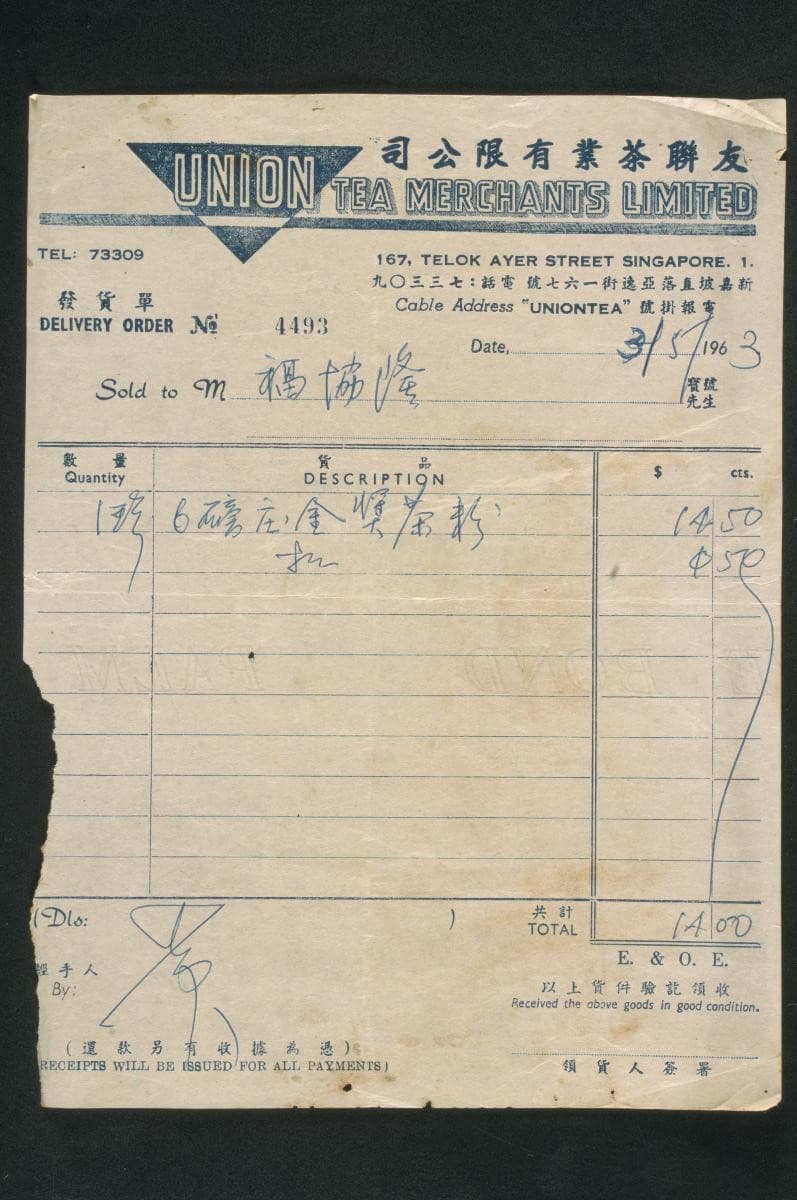 司公限有業茶聯友
UNION TEA MERCHANTS LIMITED
TEL: 73309
167, TELOK AYER STREET SINGAPORE. 1.
九〇三三七：話電 號七六一街逸亞落直坡嘉新
發貨單
Cable Address "UNIONTEA" 號掛報電
DELIVERY ORDER № 4493
Date, 3/5/ 1963
Sold to M 福協隆 寶號
先生
數量 貨品
Quantity DESCRIPTION $ cts.
1 6磅庄金獎茶粉 14 50
扣 50
(Dls: ) 共計
TOTAL 14 00
E. & O. E.
經手人
By:
以上貨件驗訖領收
Received the above goods in good condition.
(還款另有收據為憑)
RECEIPTS WILL BE ISSUED FOR ALL PAYMENTS)
領貨人簽署